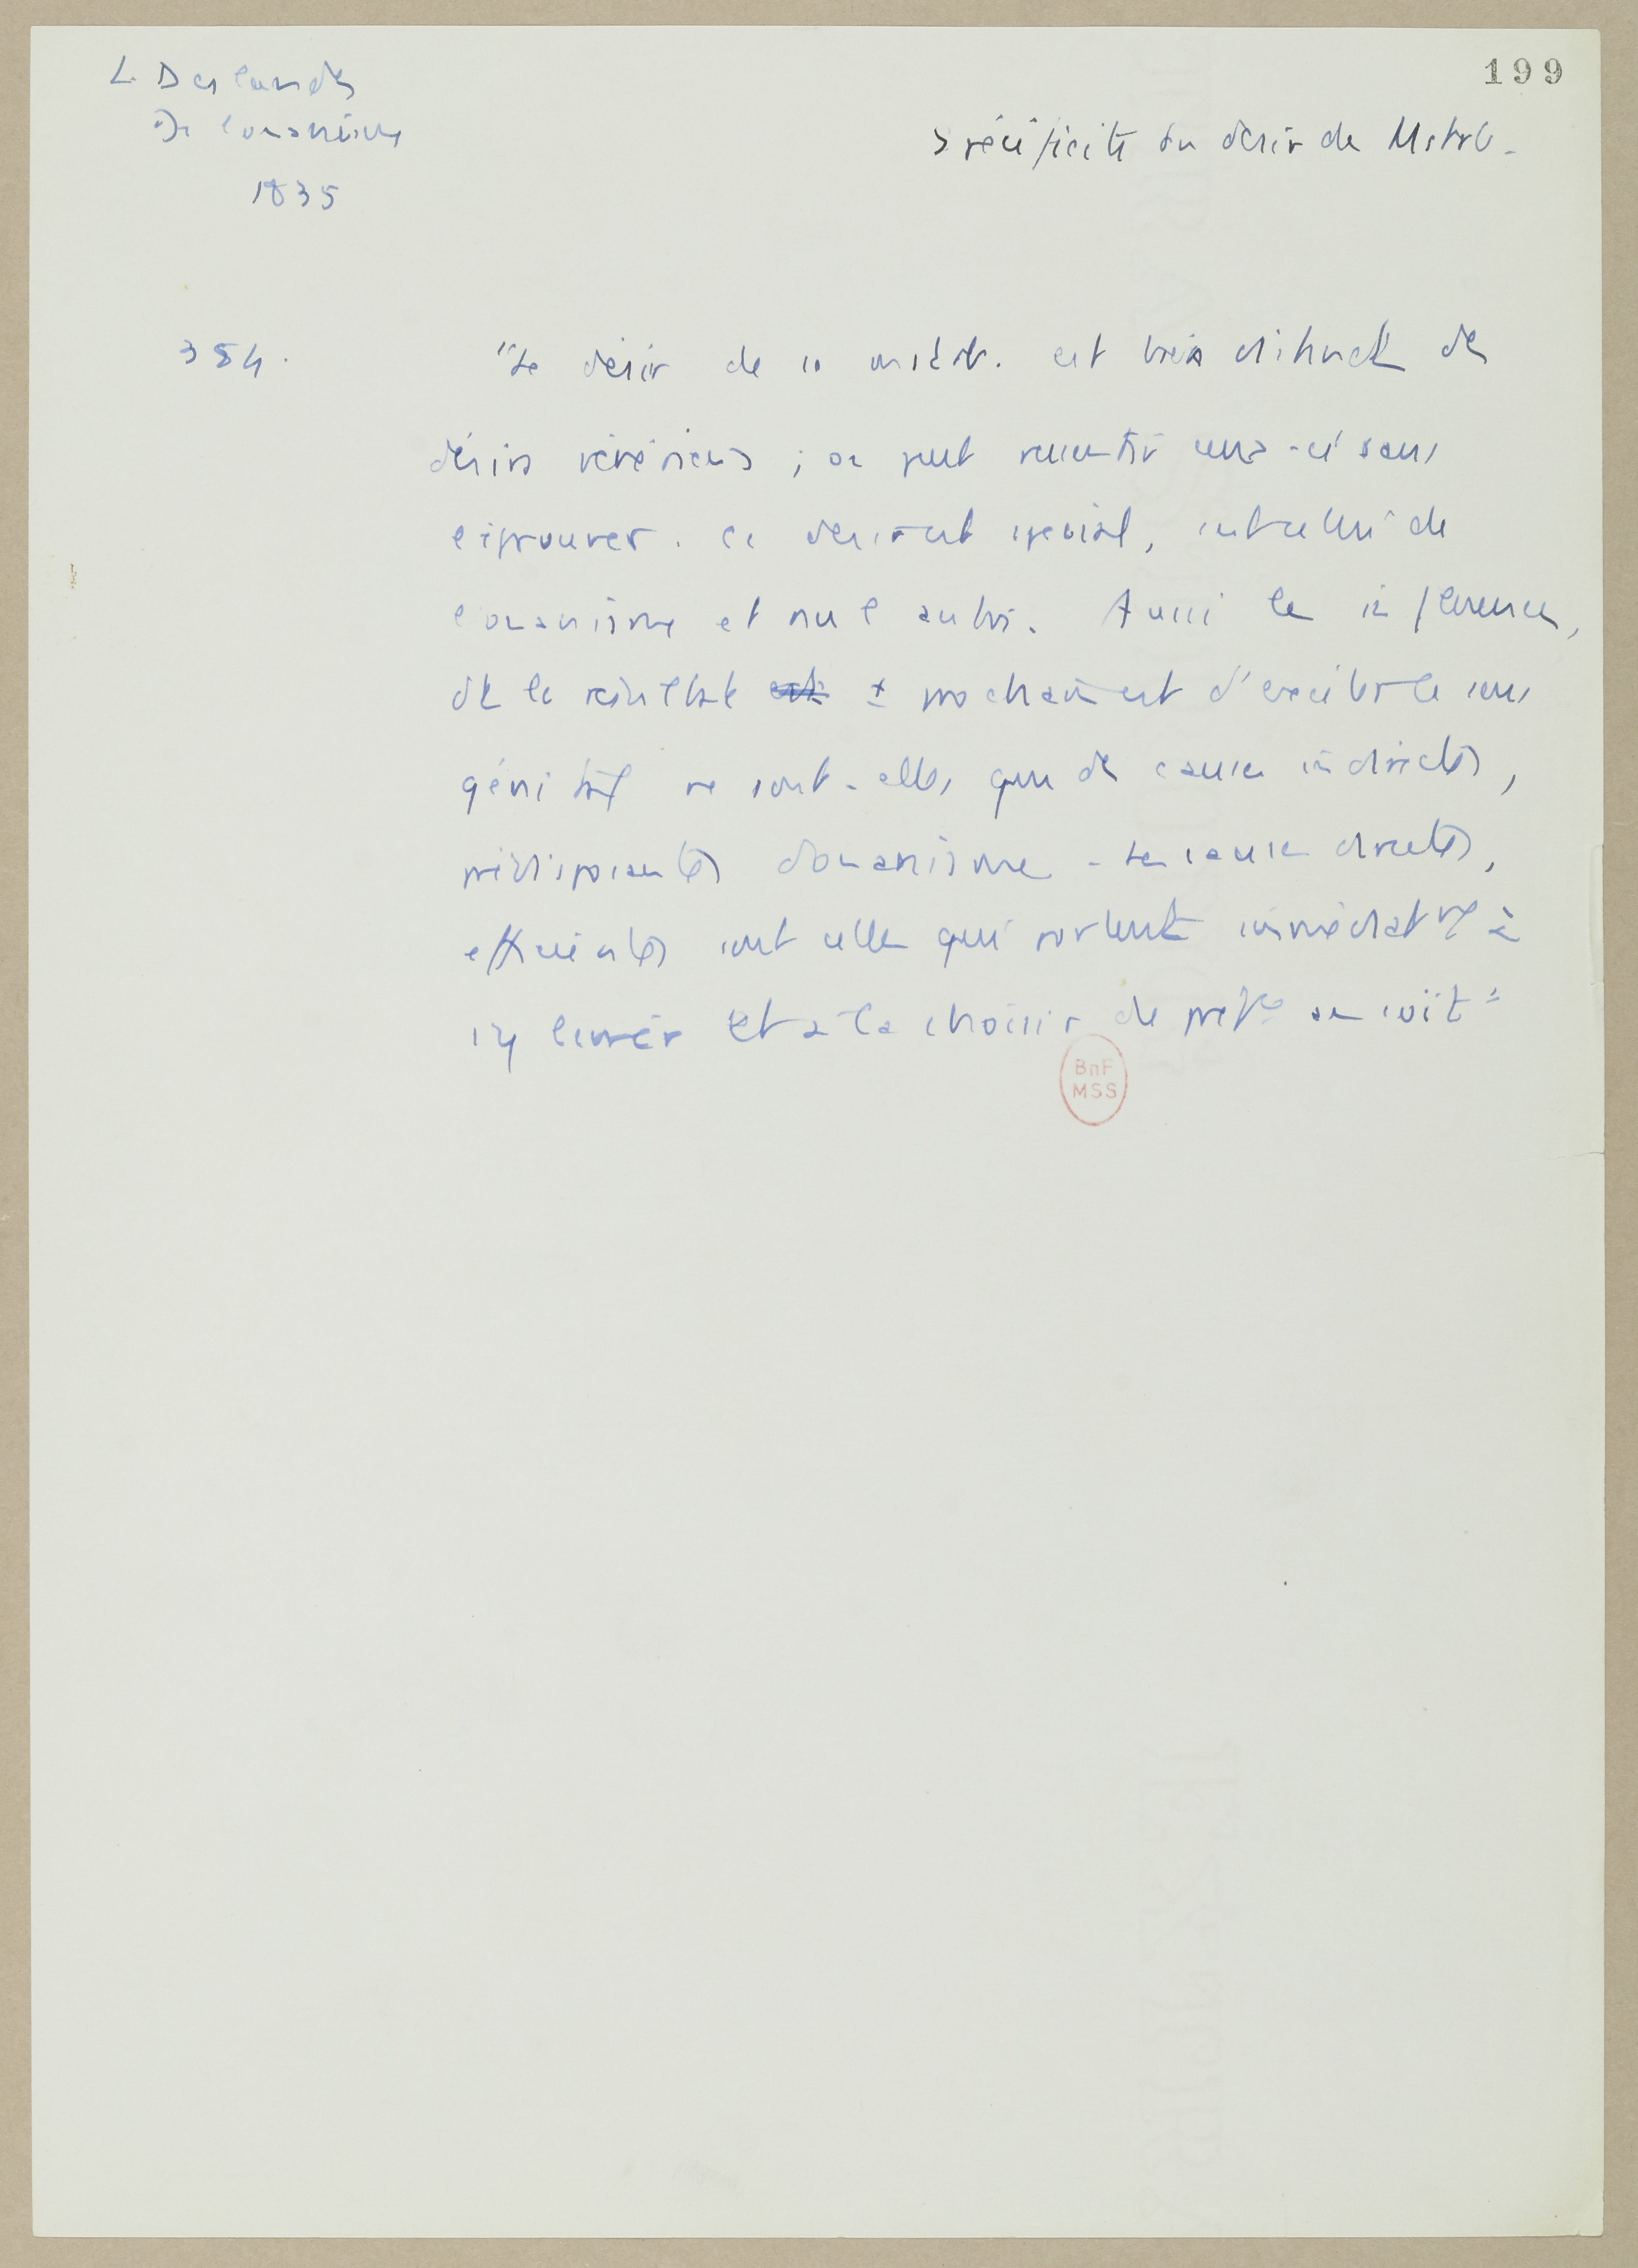 199
L. Deslandes
De l'onanisme
1835
Spécificité du désir de Mstrb.
354.
"Le désir de se mastb. est bien distinct des
désirs vénériens ; on peut ressentir ceux-ci sans
l'éprouver. Ce désir est spécial, est celui de
l'onanisme et nul autre. Aussi les influences,
dt le résultat est ± prochain est d'exciter le sens
génital ne sont-elles que des causes indirectes,
prédisposantes d'onanisme - Les causes directes,
efficientes sont celles qui portent immédiatt à
s'y livrer et à la choisir de préfce au coït"
BnF
MSS